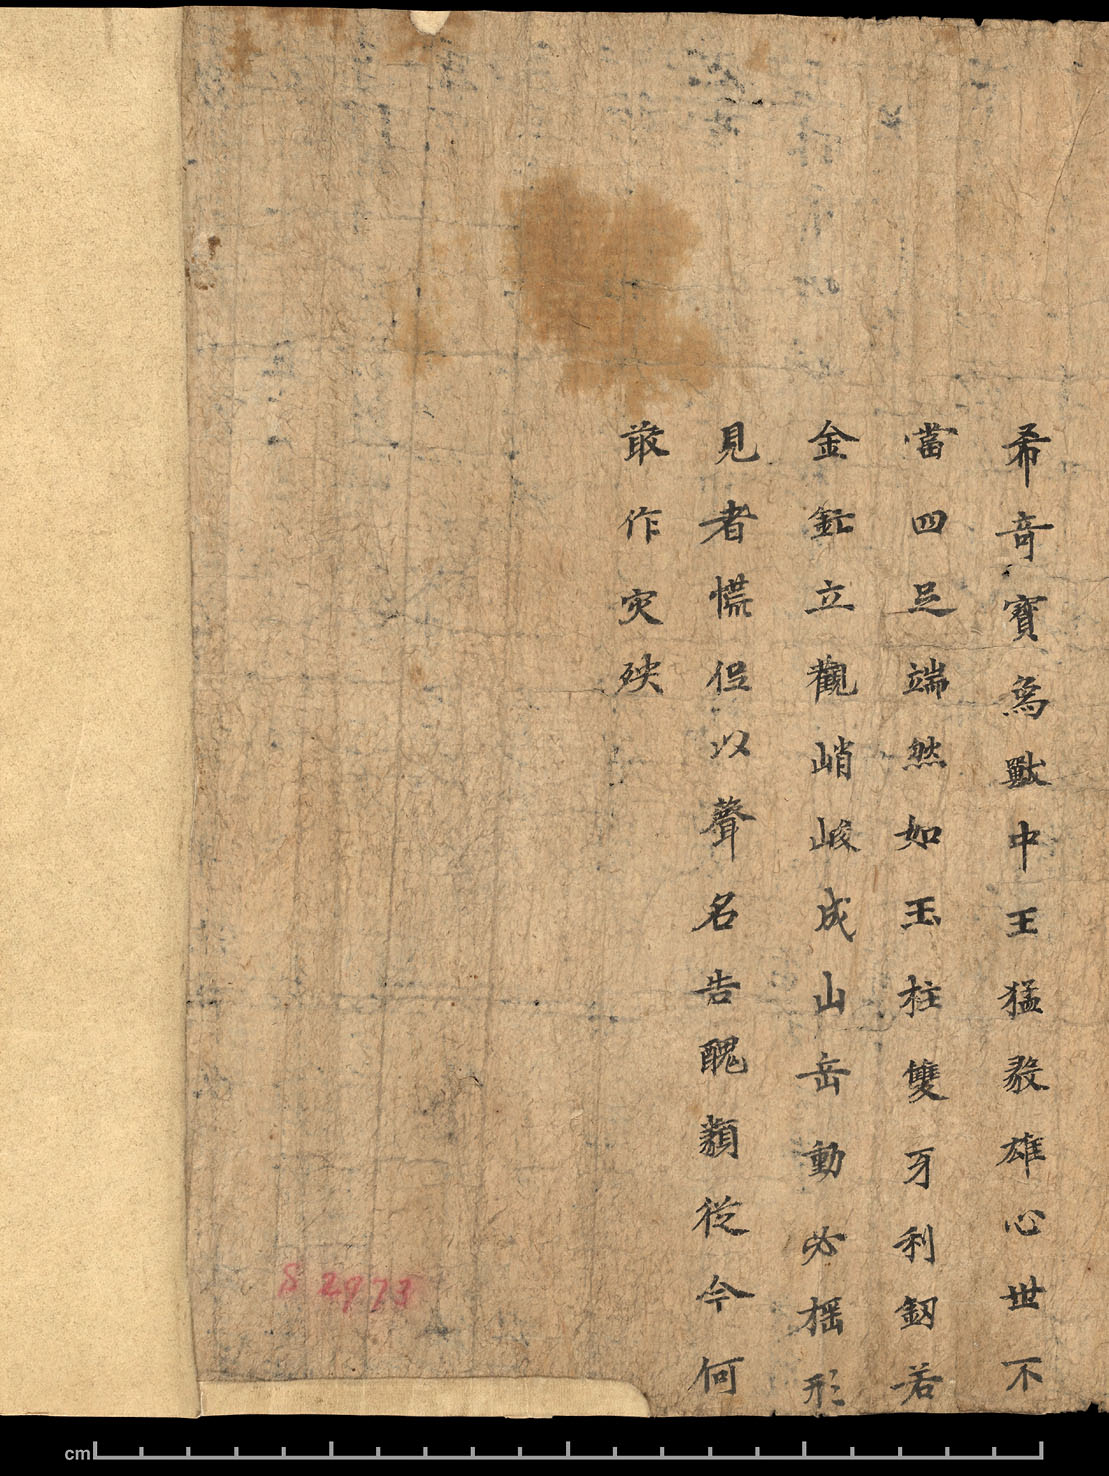 希奇寶為獸中王猛毅雄心世不
當四足端然如玉柱雙牙利釼若
金釭立觀峭峻成山岳動必摇形
見者慌𢓜以聲名告醜類從今何
敢作灾殃
S 2973
cm